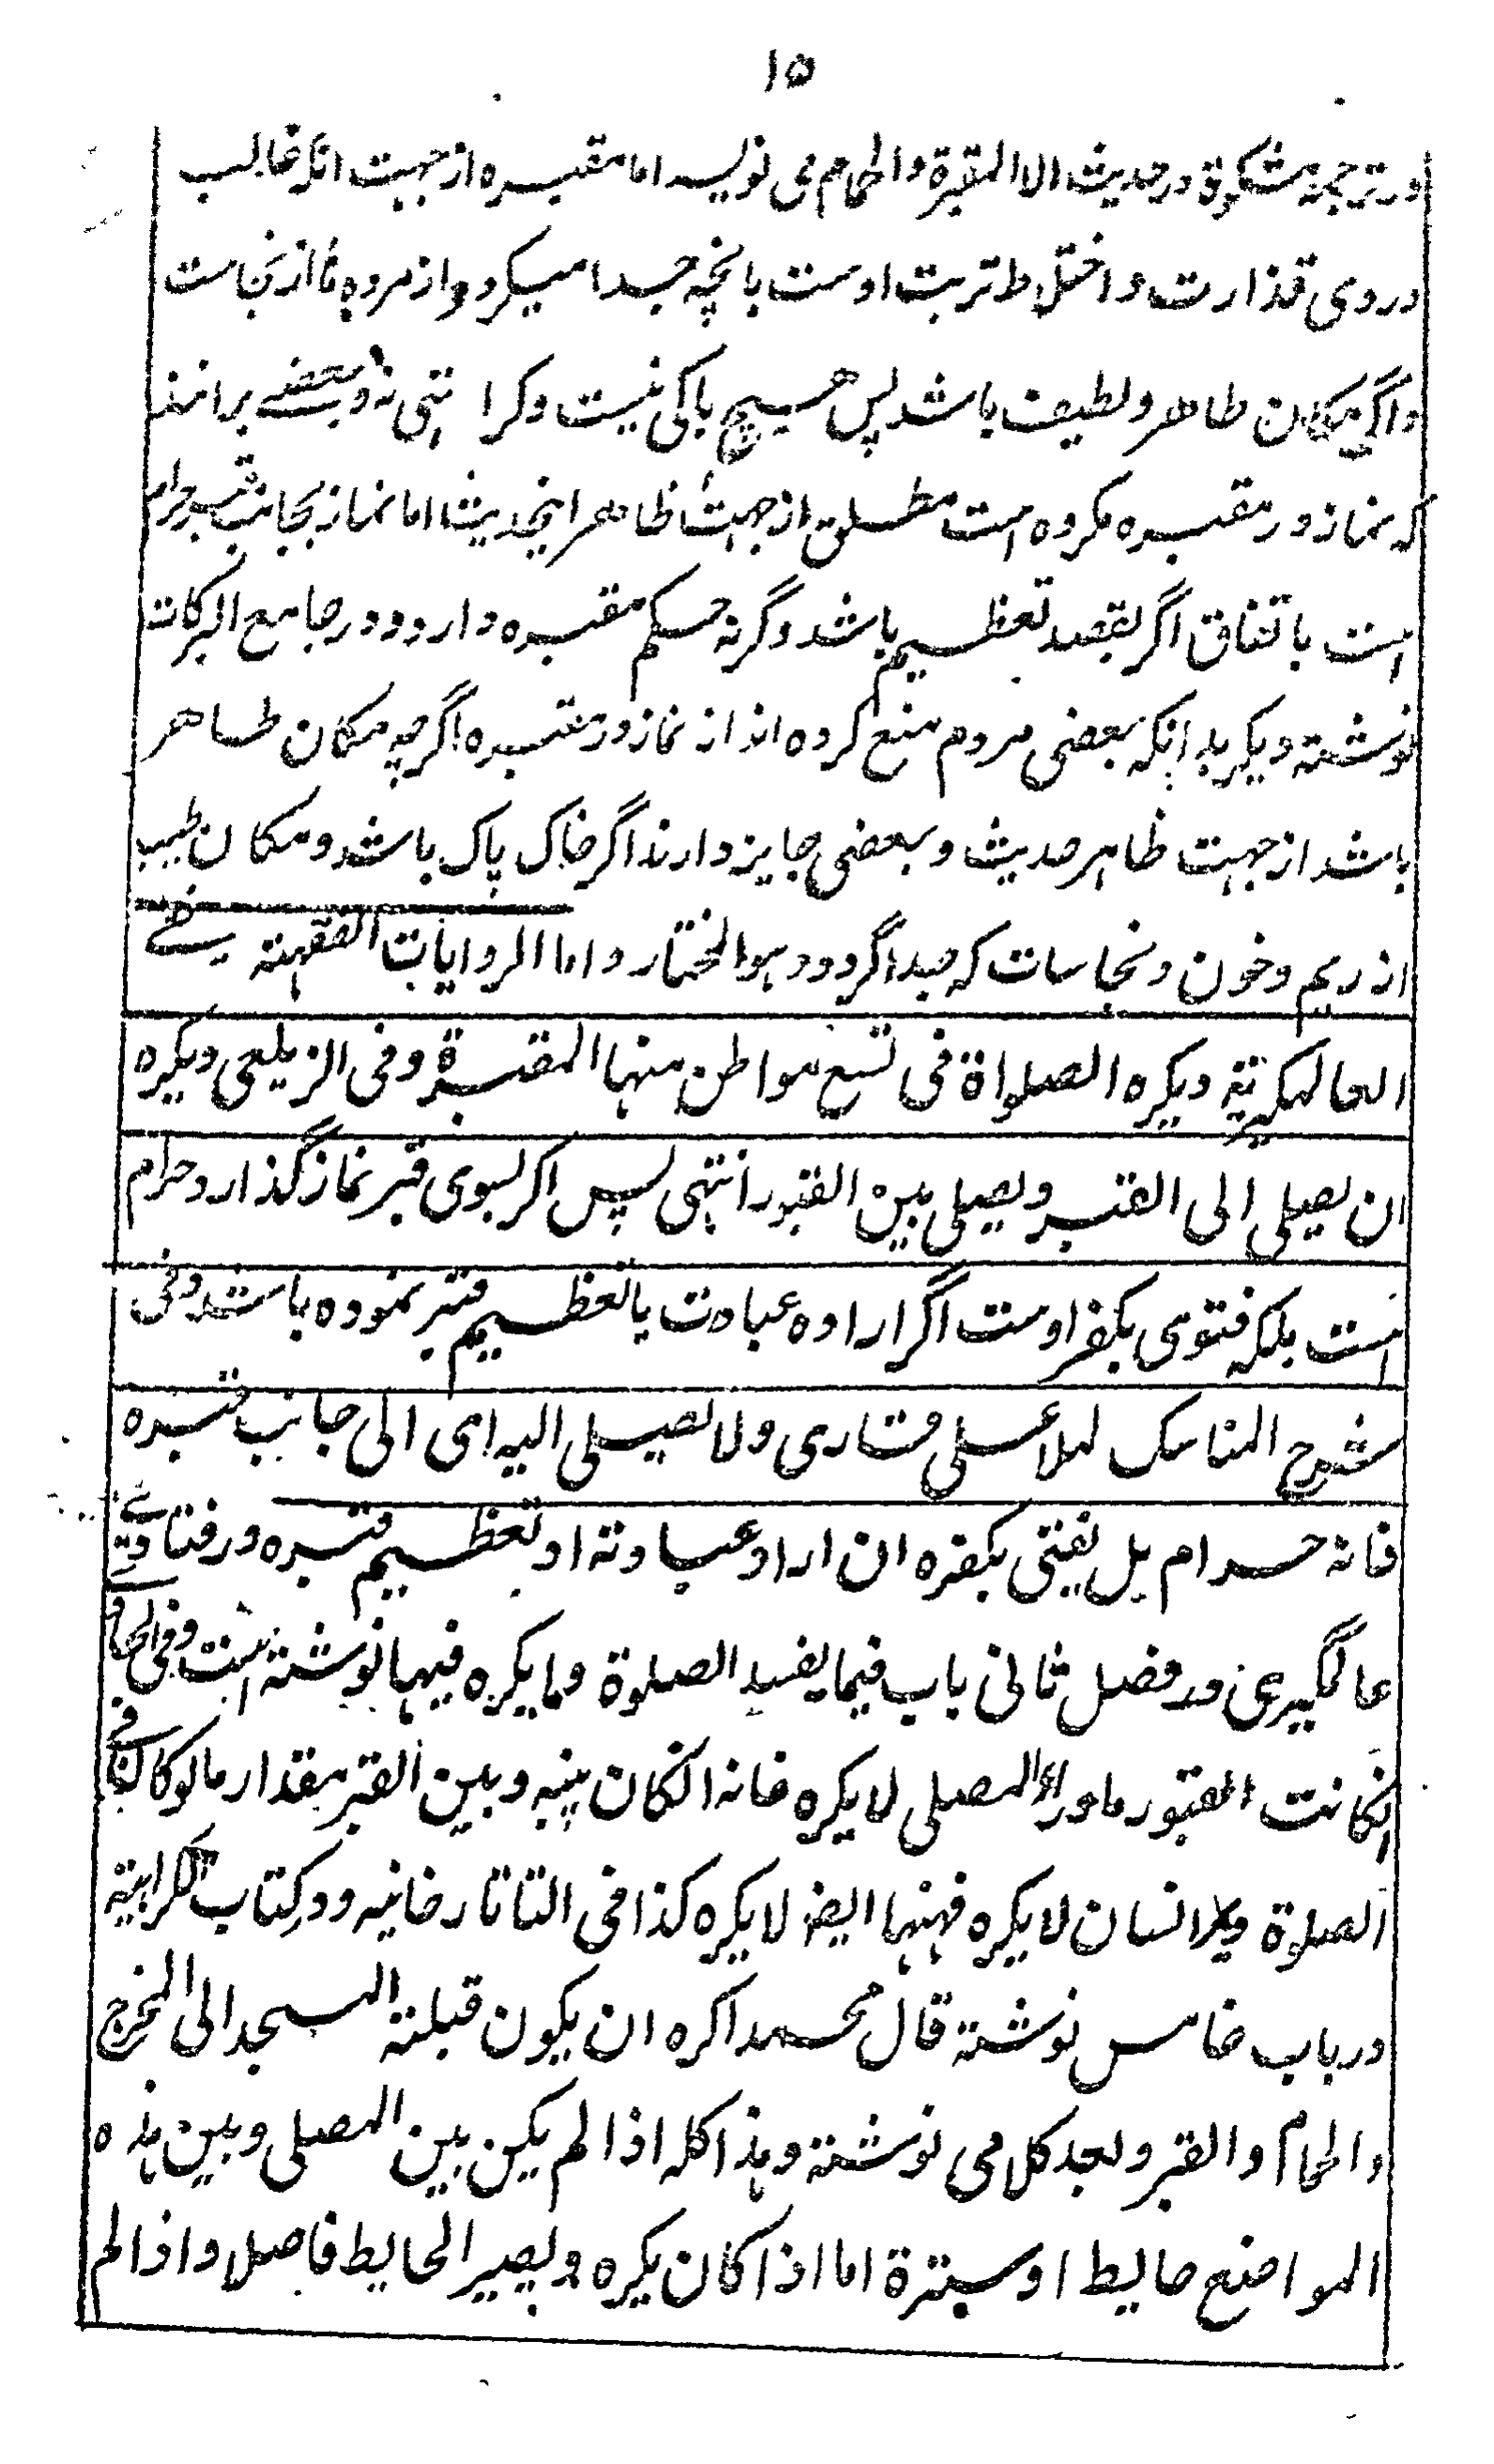 ۱۵
در ترجمه مشکوة در حدیث الا المقبرة والحمام می نویسد اما مقبره از جهت آنکه غالب
در وی قذارت و اختلاط تربت اوست بانچه جدا میگردد از مردها از نجاست
و اگر مکان طاهر و لطیف باشد پس هیچ باکی نیست و کراهتی نه و بعضے برانند
که نماز در مقبره مکروه است مطلق از جهت ظاهر اینحدیث اما نماز بجانب قبر حرام
است باتفاق اگر بقصد تعظیم باشد وگرنه حکم مقبره دارد و در جامع البرکات
نوشته دیگر بدانکه بعضی مردم منع کرده اند از نماز در مقبره اگرچه مکان طاهر
باشد از جهت ظاهر حدیث و بعضی جایز دارند اگر خاک پاک باشد و مکان طیب
از ریم و خون و نجاسات که جدا گردد و هو المختار و اما الروایات الفقهته فے
العالمکیریة ویکره الصلواة فی تسع مواطن منها المقبرة وفی الزیلعی ویکره
ان یصلی الی القبر ویصلی بین القبور انتهی پس اکر بسوی قبر نماز گذارد حرام
است بلکه فتوی بکفر اوست اگر اراده عبادت یا تعظیم قبر نموده باشد وفی
شرح المناسک لملا علی قاری ولا یصلی الیه ای الی جانب قبره
فانه حرام بل یفتی بکفره ان اراد عبادته او تعظیم قبره و در فتاوے
عالمگیری در فصل ثانی باب فیما یفسد الصلوة وما یکره فیها نوشته است وفی الحاوی
انکانت القبور ما وراء المصلی لا یکره فانه انکان بینه وبین القبر مقدار ما لو کان فے
الصلوة ویمر انسان لا یکره فههنا ایضا لا یکره کذا فی التاتارخانیه و در کتاب الکراهیة
در باب خامس نوشته قال محمد اکره ان یکون قبلته المسجد الی المخرج
والحمام والقبر و بعد کلامی نوشته وهذا کله اذا لم یکن بین المصلی وبین هذه
المواضع حایط او سترة اما اذا کان یکره ویصیر الحایط فاصلا واذا لم